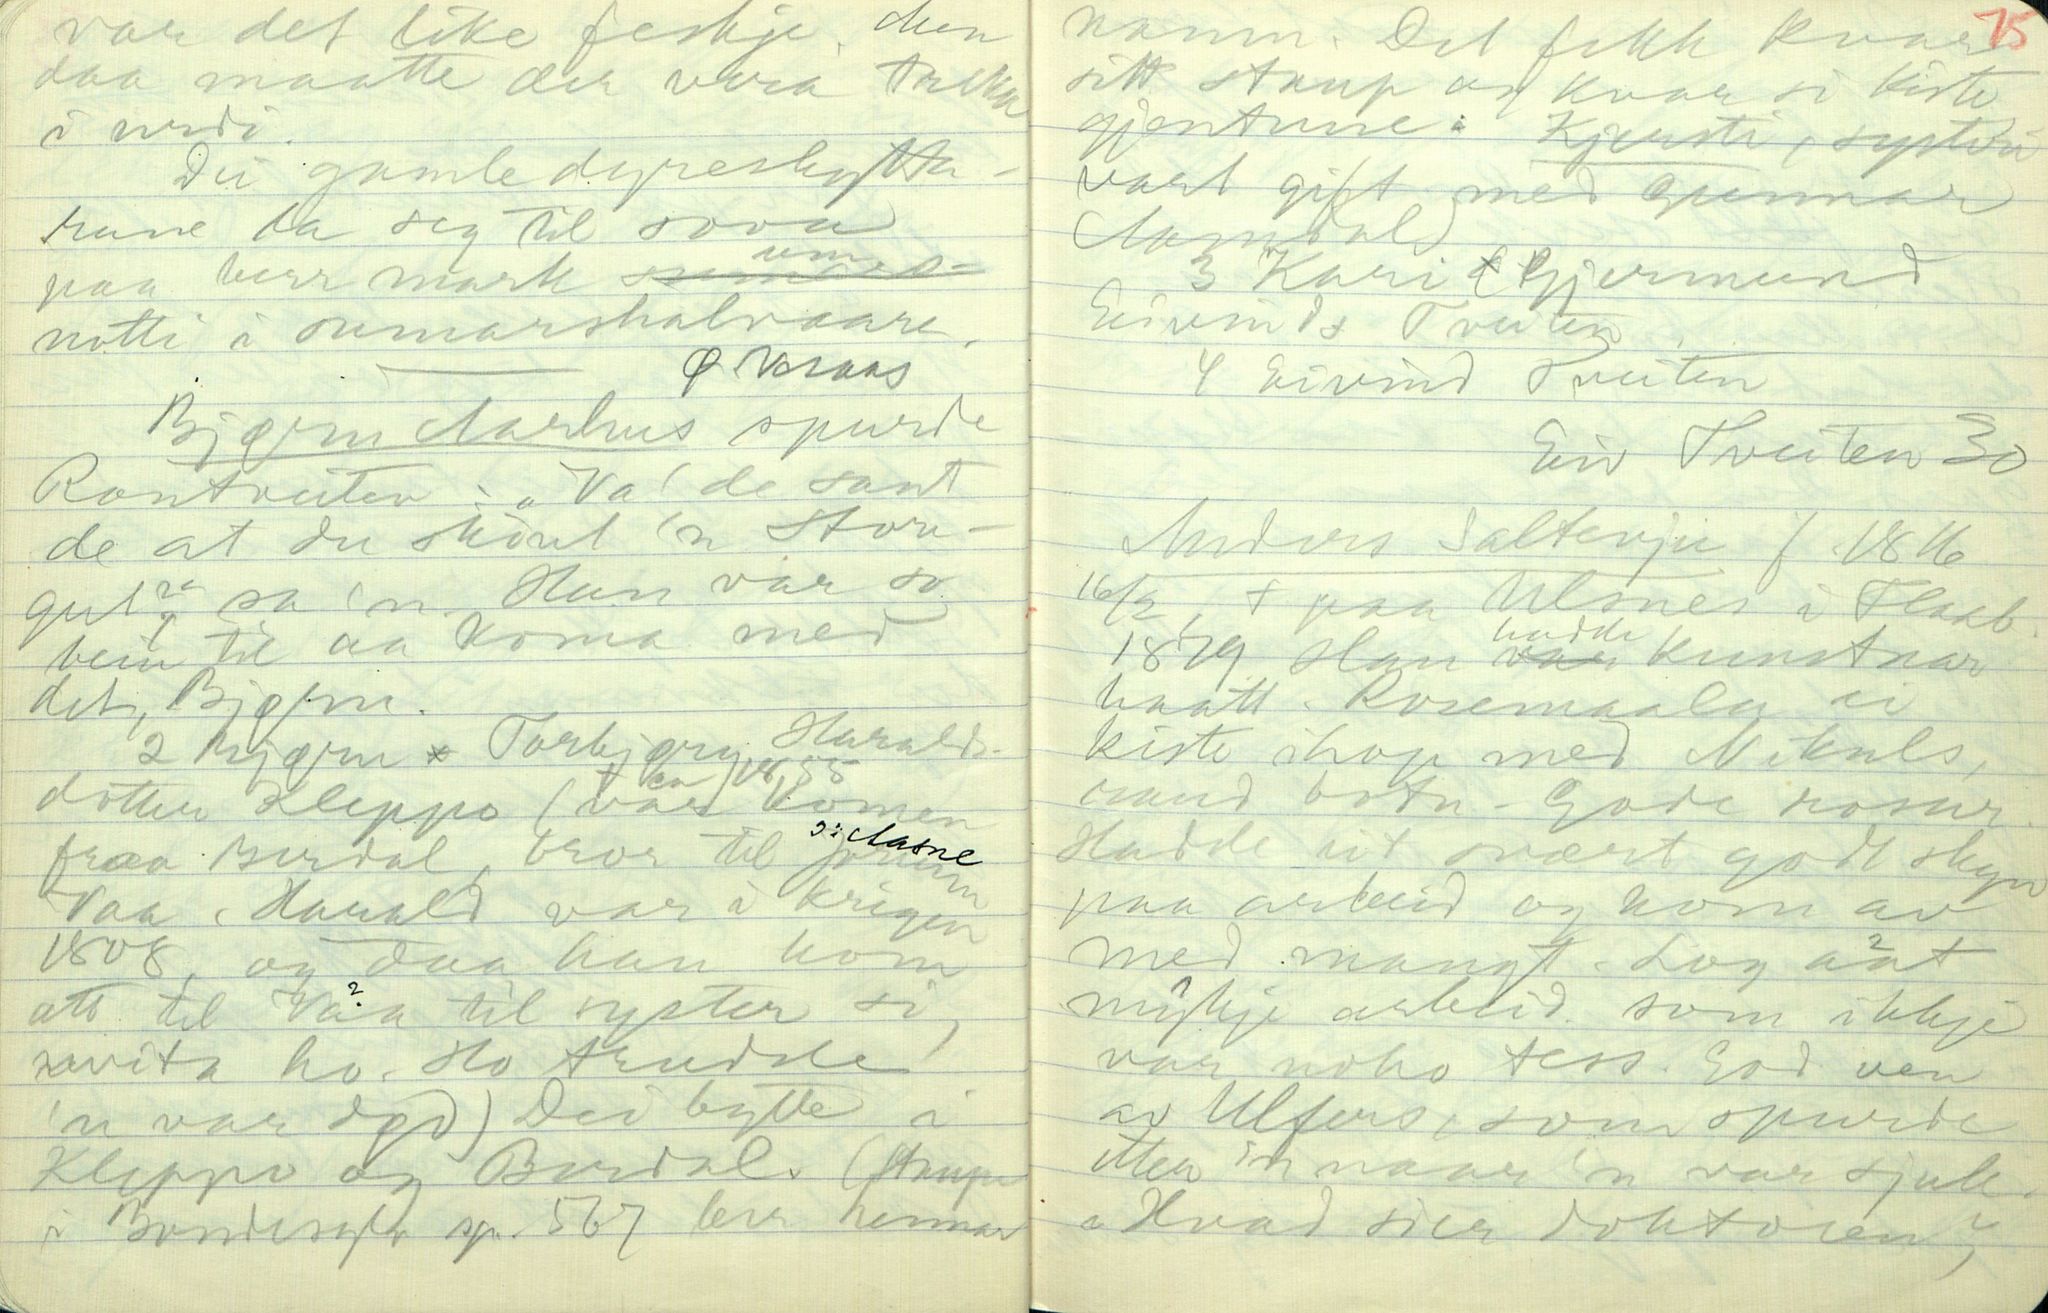 var det like feskje. Men
daa maatte der vera turka
i urdi.
Dei gamle dyreskytta-
rane la seg til sova
paa berr mark um
notti i sumarshalvaare.
Ø. Vraas
Bjørn Aarhus spurde
Rontveiten: "Va' de sant
de at du skout 'n stor-
gut?" sa 'n. Han var so
bein til aa koma med
det, Bjørn.
2 Bjørn x Torbjørg Haralds-
dotter Kleppo (var komen
ca 1855
fraa Berdal, bror til Jorunn
ɔ: Aasne
Vaa. Harald var i krigen
1808, og daa han kom
att til Vaa til syster si,
svita ho. Ho trudde
'n var død) Dei bytte i
Kleppo og Berdal. (Staupe
i Bondesgk sp. 567 berr hennar
75
namn. Det fekk kvar
sitt staup og kvar si kiste
gjentune. Kjersti, systeri
vart gift med Gunnar
Aamdal)
3 Kari x Gjermund
Eivinds Tveiten
4 Eivind Tveiten
Eiv Tveiten 30
Anders Saltevju f 1816
16/2, + paa Ulsnes i Flaab.
1879. Han hadde kunstnar
haatt. Rosemaala ei
kiste ihop med Nikuls,
rund botn. Gode rosur.
Hadde eit svært godt skyn
paa arbeid og kom av
med mangt. Log aat
mykje arbeid som ikkje
var noko tess. God ven
av Ulfers, som spurde
etter 'n naar 'n var sjuk.
"Hvad sier doktoren?